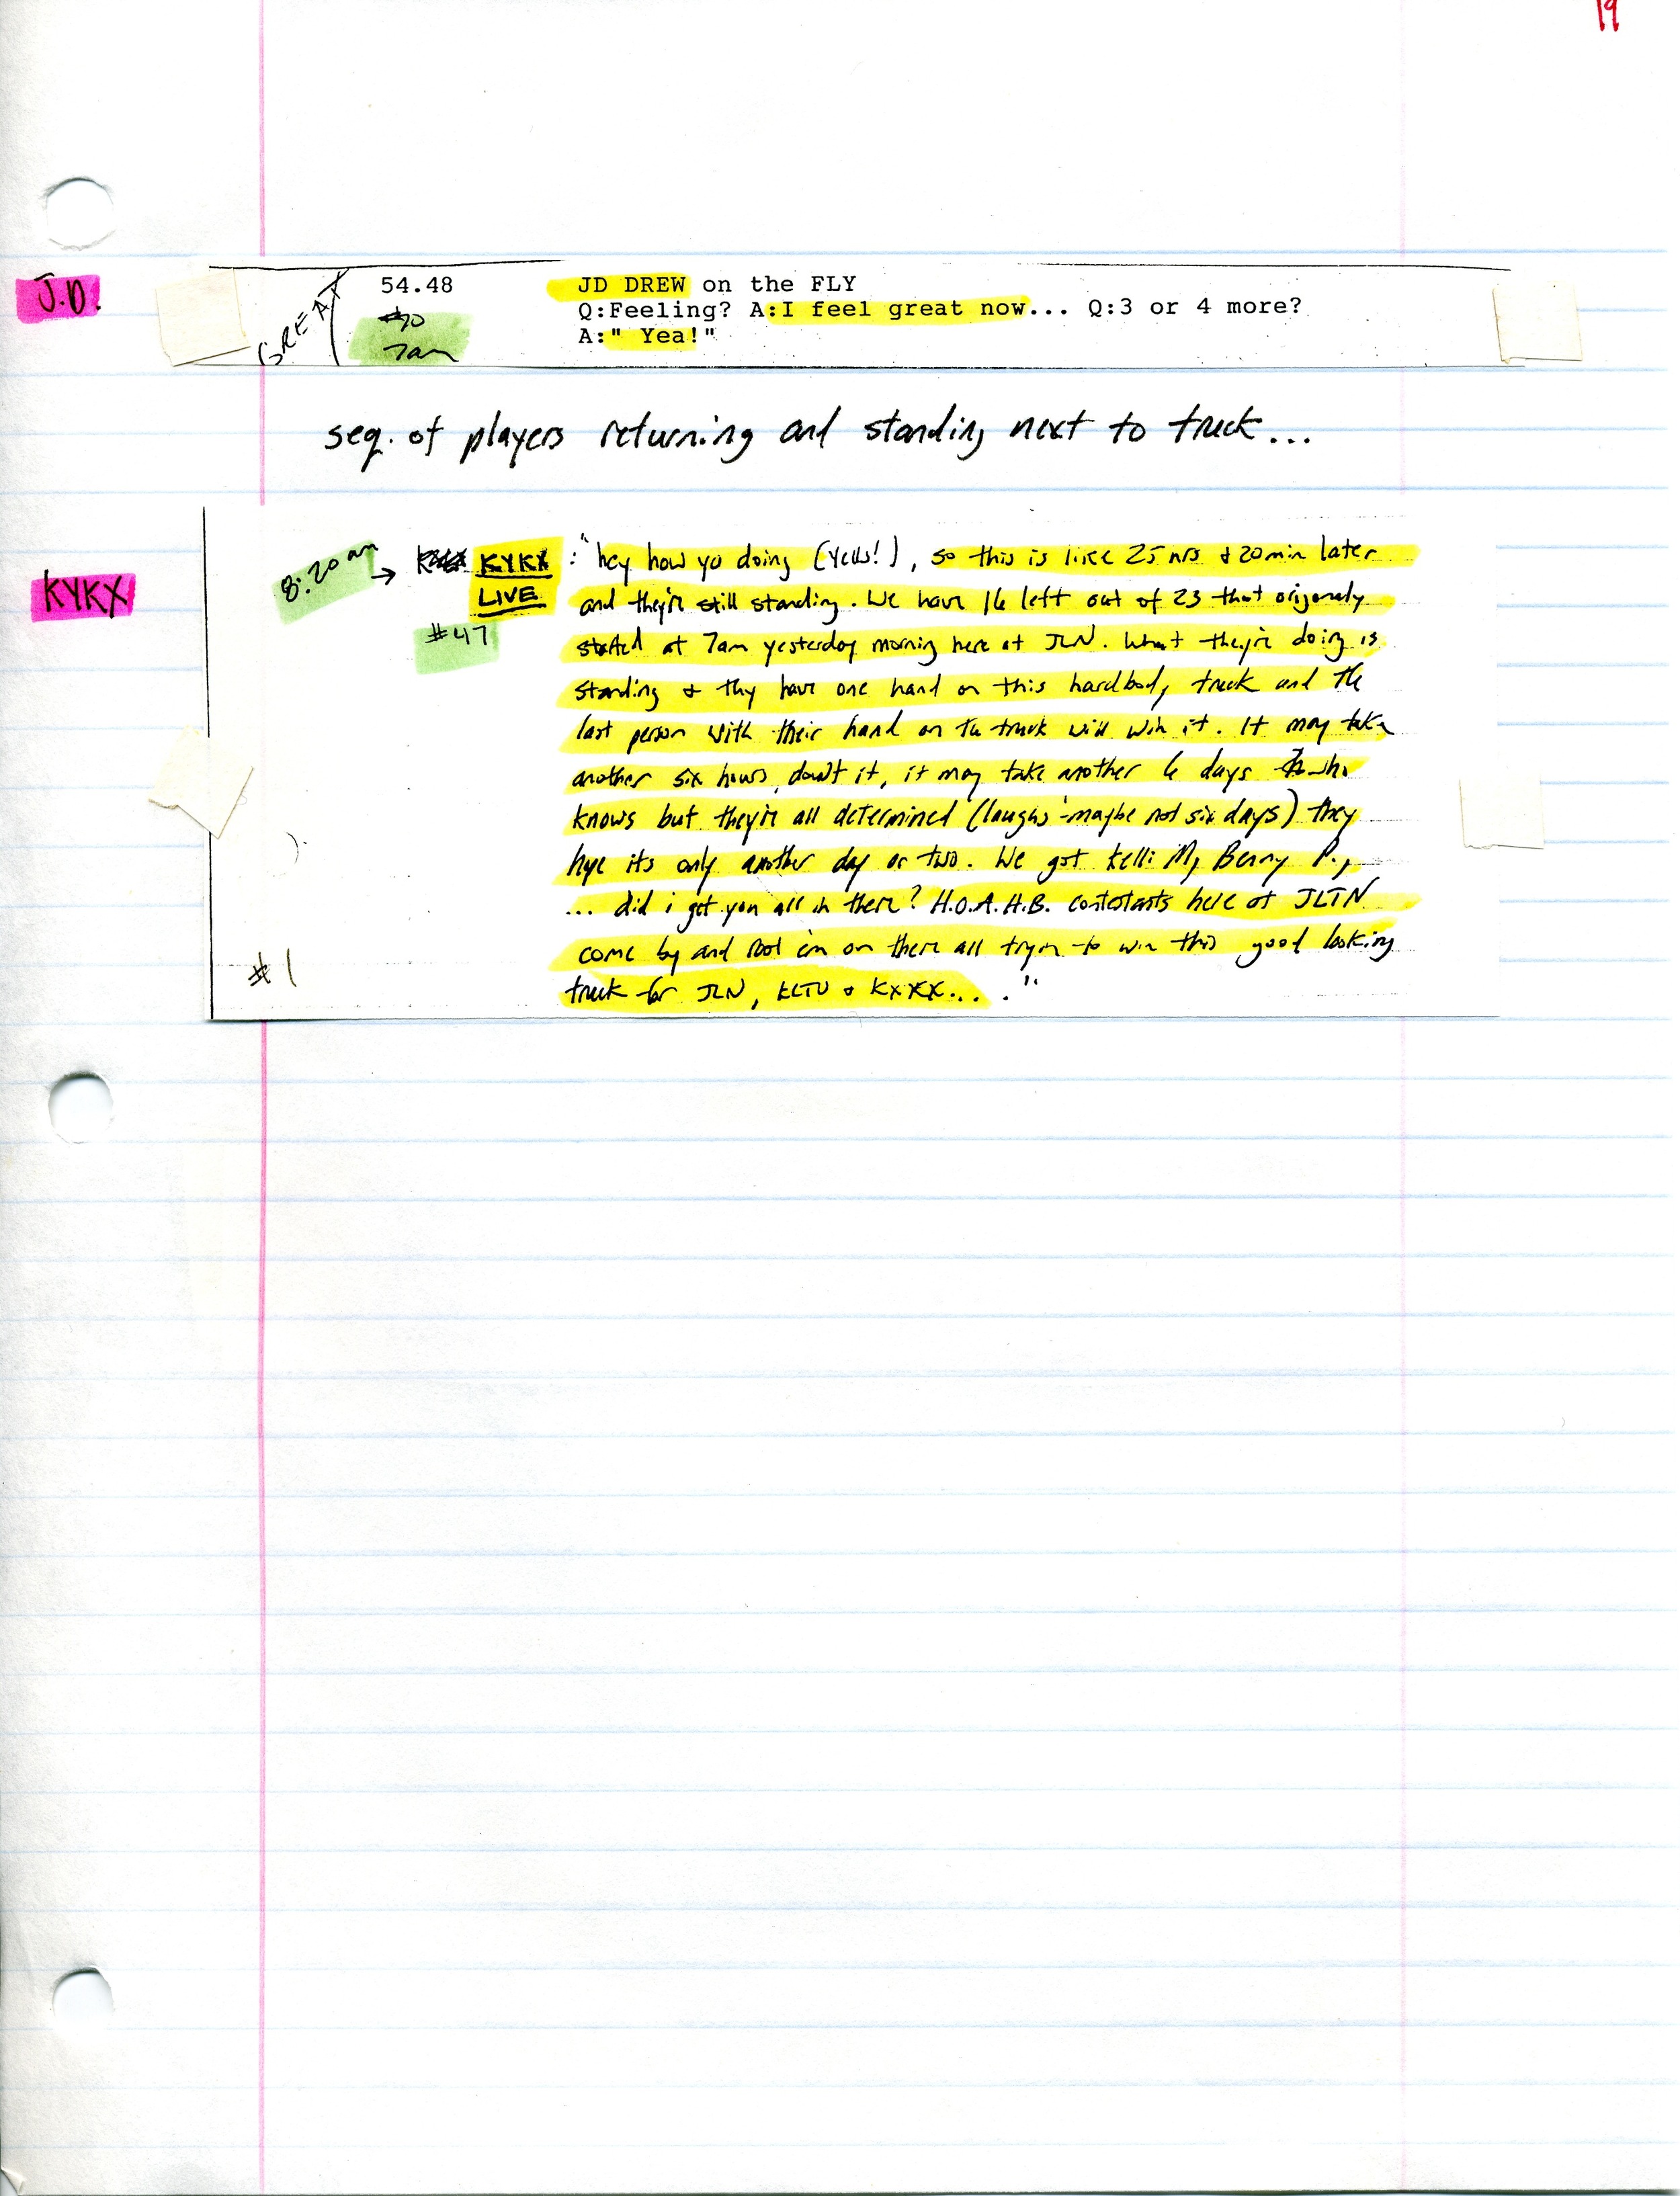 19
J.D.
GREAT
54.48
#70
7am
JD DREW on the FLY
Q:Feeling? A:I feel great now... Q:3 or 4 more?
A:" Yea!"
seq. of players returning and standing next to truck...
KYKX
8:20am → KYKX LIVE
#47
#1
: "hey how yo doing (yells!), so this is like 25 hrs & 20min later
and they're still standing. We have 16 left out of 23 that origonely
started at 7am yesterday morning here at JLN. What they're doing is
standing & thy have one hand on this hardbody truck and the
last person with their hand on the truck will win it. It may take
another six hours, doubt it, it may take another 6 days who
knows but they're all determined (laughs 'maybe not six days) they
hope its only another day or two. We got Kelli M, Benny P.,
... did i get you all in there? H.O.A.H.B. contestants here at JLTN
come by and root em on there all tryin to win this good looking
truck for JLN, KLTV & KXKX... ."